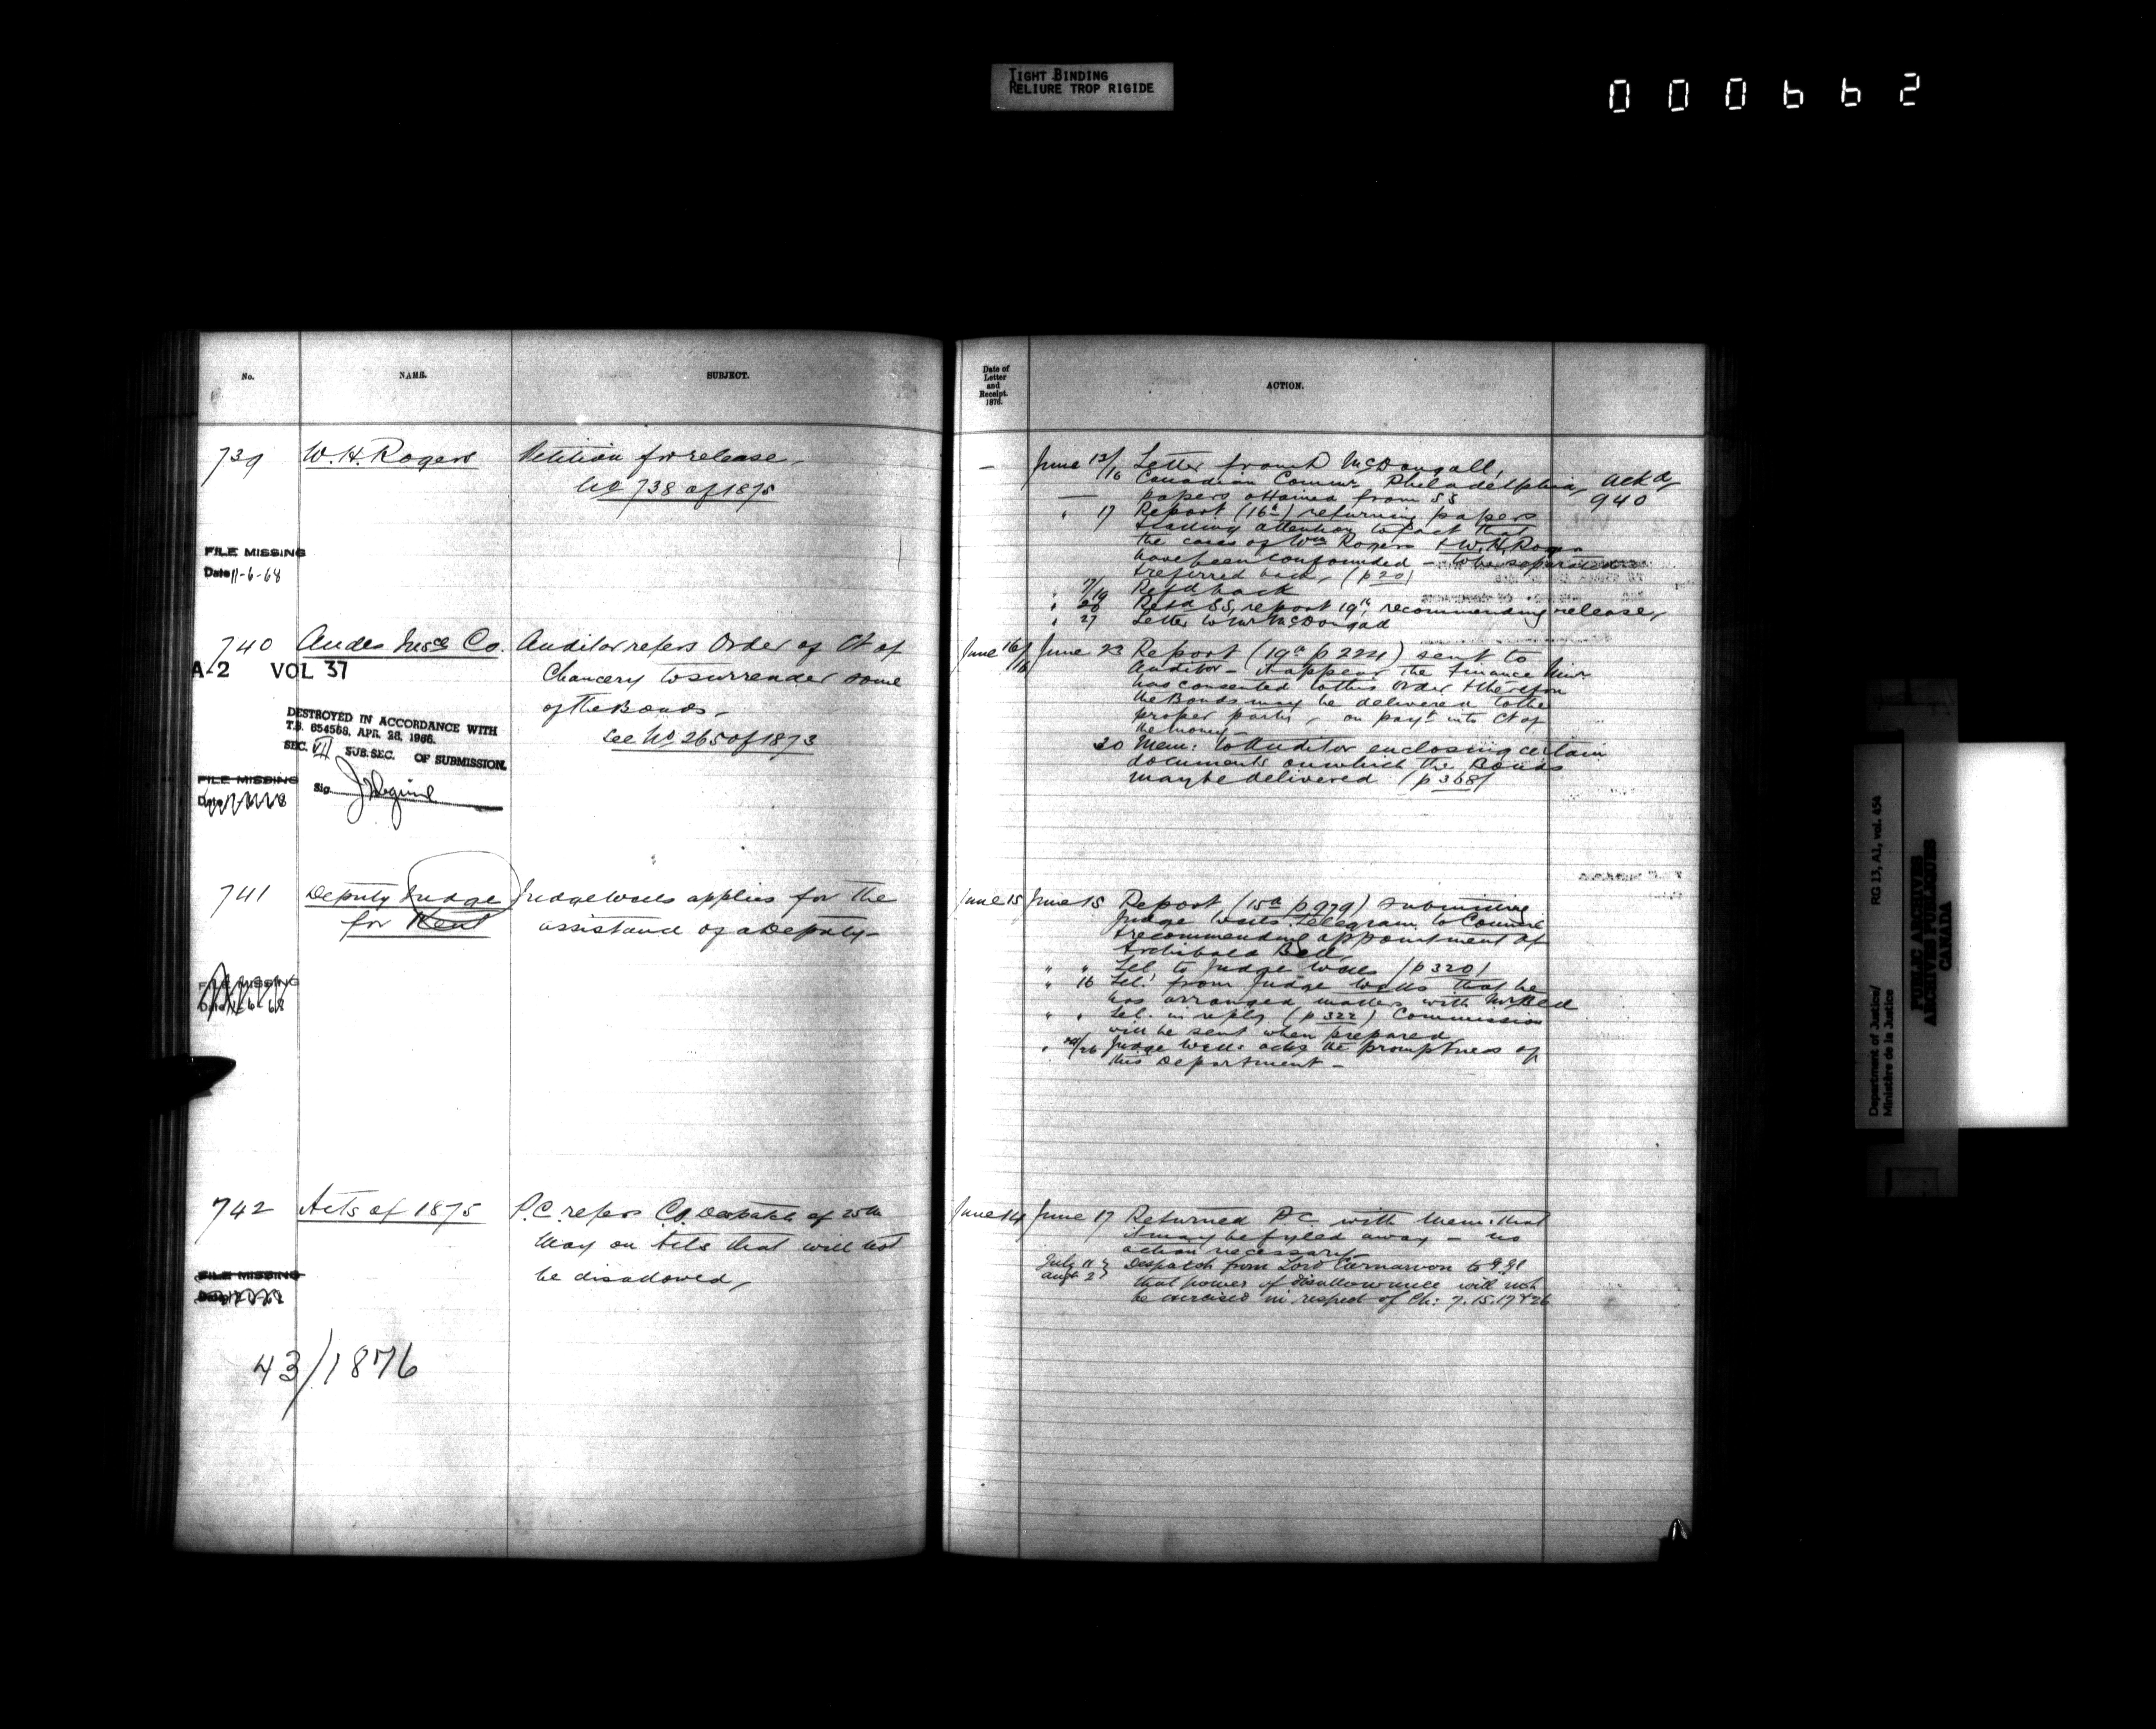 TIGHT BINDING
RELIURE TROP RIGIDE
000662
No.
NAME.
SUBJECT.
739
W. H. Rogers
Petition for release,
No 738 of 1875
FILE MISSING
Date 11-6-68
740
Andes Insce Co.
Auditor refers Order of Ct of
Chancery to surrender some
of the Bonds.
See No 265 of 1873
A-2 VOL 37
DESTROYED IN ACCORDANCE WITH
T.B. 654568, APR. 28, 1966.
SEC. VII SUB. SEC. OF SUBMISSION.
Sig.
FILE MISSING
741
Deputy Judge
for Kent
Judge Wells applies for the
assistance of a Deputy -
FILE MISSING
742
Acts of 1875
P.C. refers C.O. Despatch of 25th
May on Acts that will not
be disallowed,
FILE MISSING
43/1876
Date of
Letter
and
Receipt.
1876.
ACTION.
- June 13/16 Letter from D McDougall,
Canadian Commr, Philadelphia, ackd
papers obtained from SS 940
" 17 Report (16a) returning papers
& calling attention to fact that
the cases of Wm Rogers & W. H. Rogers
have been confounded - to be separated
& referred back, (p 20)
" 7/19 Refd back
" 20 Retd SS, report 19a, recommending release,
" 27 Letter to Mr McDougall
June 16/16 June 23 Report (19a p 224) sent to
Auditor - it appears the Finance Minr
has consented to this order & therefore
the Bonds may be delivered to the
proper party, on payt into Ct of
the money -
30 Mem: to Auditor enclosing certain
documents on which the Bonds
may be delivered (p 368)
June 15 June 15 Report (15a p 979) submitting
Judge Wells telegram to Council
& recommending appointment of
Archibald Bell,
" " Tel. to Judge Wells (p 320)
" 16 Tel. from Judge Wells that he
has arranged matters with Mr Bell
" " Tel. in reply (p 322) Commission
will be sent when prepared
/26 Judge Wells ackg the promptness of
this Department -
June 14 June 17 Returned P.C. with Mem: that
it may be fyled away - no
action necessary -
July 11 Despatch from Lord Carnarvon to G Gl
Augt 2 that power of disallowance will not
be exercised in respect of Ch: 7. 15. 17 & 26
Department of Justice/
Ministère de la Justice
RG 13, A1, vol. 454
PUBLIC ARCHIVES
ARCHIVES PUBLIQUES
CANADA